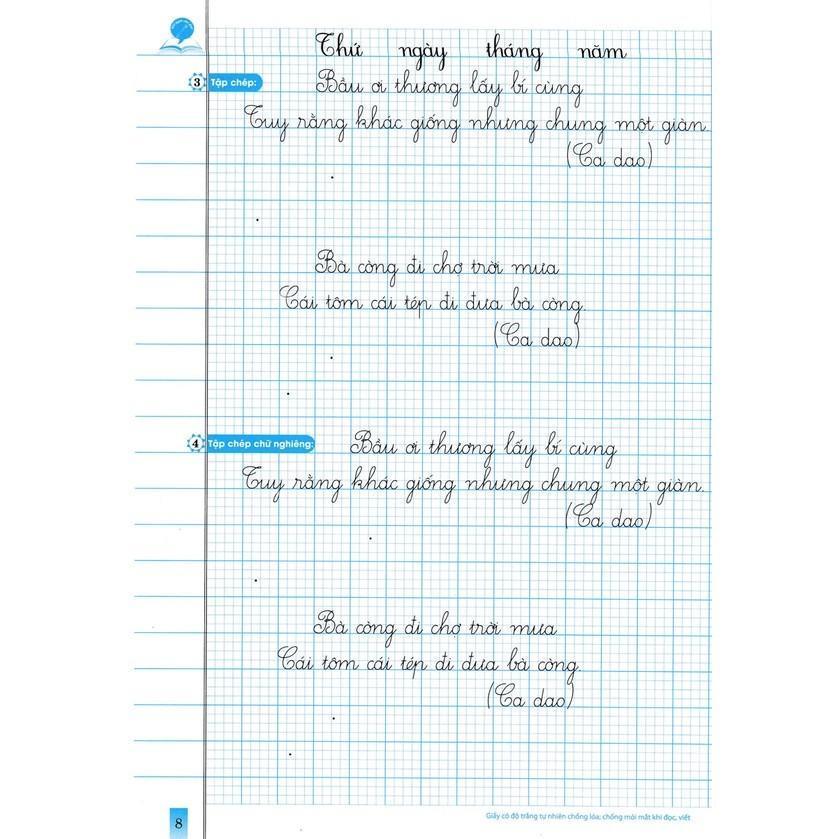 Thứ ngày tháng năm
3 Tập chép: Bầu ơi thương lấy bí cùng
Tuy rằng khác giống nhưng chung một giàn.
(Ca dao)
Bà còng đi chợ trời mưa
Cái tôm cái tép đi đưa bà còng.
(Ca dao)
4 Tập chép chữ nghiêng: Bầu ơi thương lấy bí cùng
Tuy rằng khác giống nhưng chung một giàn.
(Ca dao)
Bà còng đi chợ trời mưa
Cái tôm cái tép đi đưa bà còng.
(Ca dao)
8
Giấy có độ trắng tự nhiên chống lóa; chống mỏi mắt khi đọc, viết